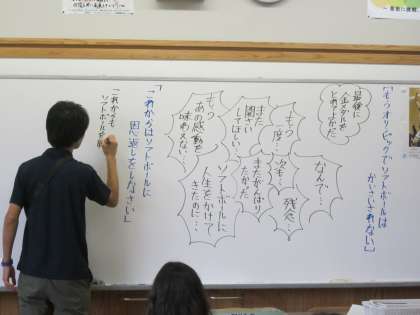 「もうオリンピックでソフトボールは
かいさいされない」
最後に
金メダルを
とれてよかった
なんで…
残念…
次も…
またがんばり
たかった
ソフトボールに
人生をかけて
きたのに…
もう
一度…
また
開さい
してほしい
もう
あの感動を
味わえない…
「これからはソフトボールに
恩返しをしなさい」
「これからも
ソフトボールを